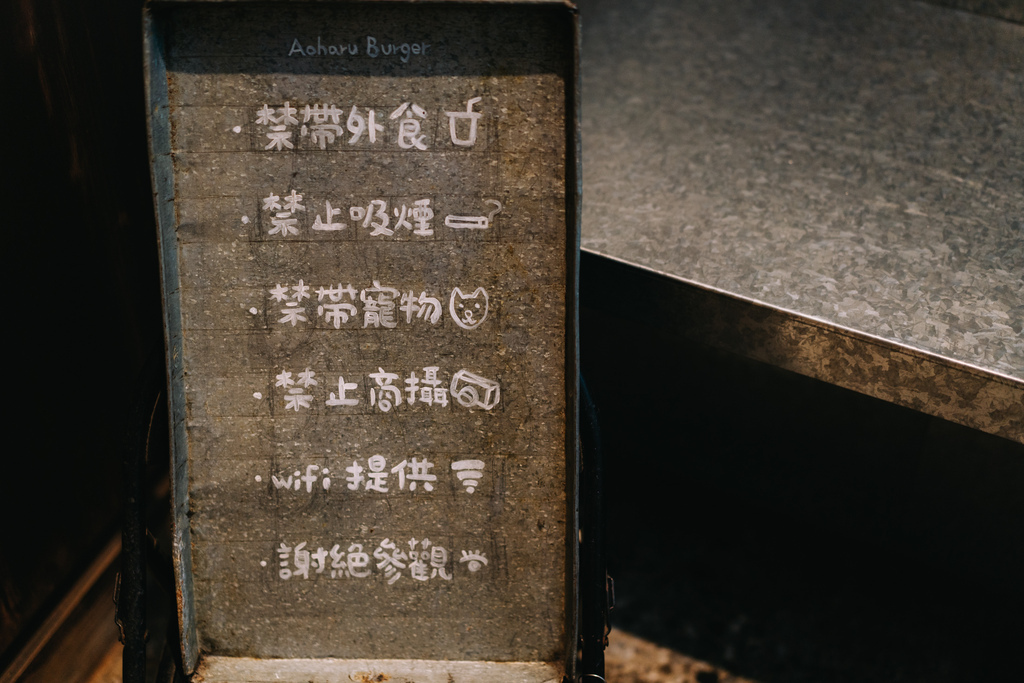 Aoharu Burger
· 禁帶外食
· 禁止吸煙
· 禁帶寵物
· 禁止商攝
· wifi 提供
· 謝絕參觀